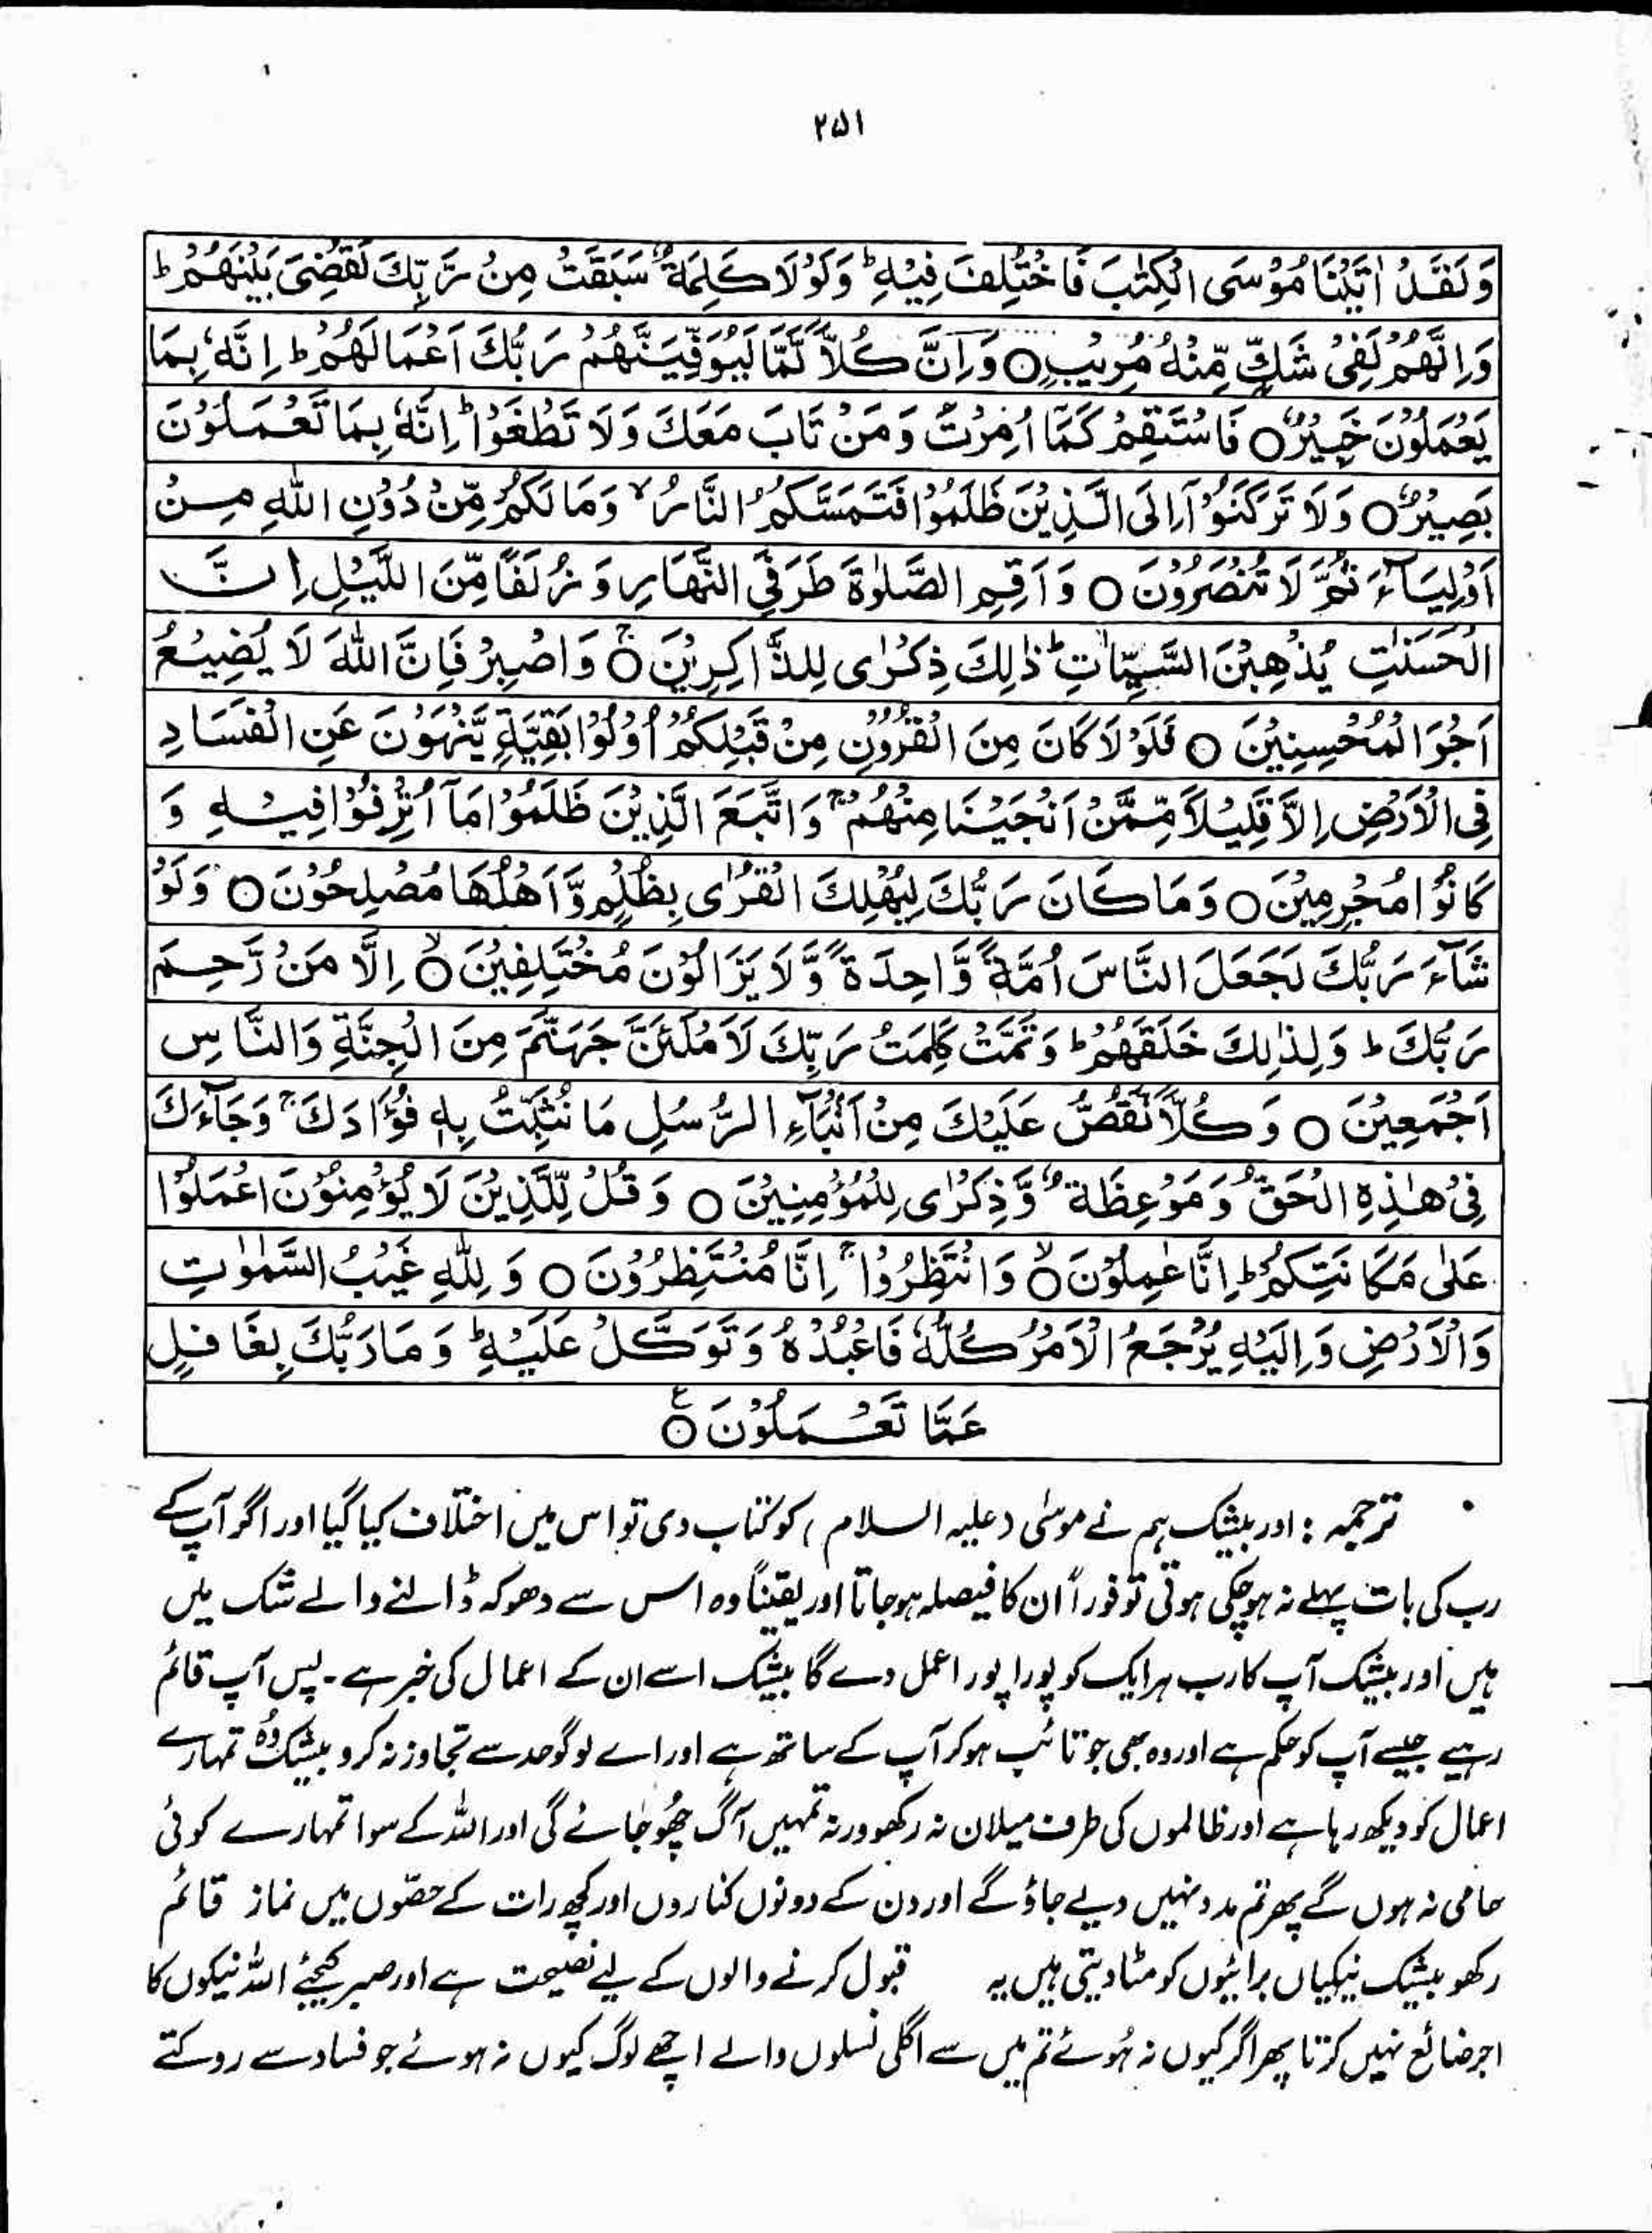 ۲۵۱
وَلَقَدْ اٰتَيْنَا مُوْسَى الْكِتٰبَ فَاخْتُلِفَ فِيْهِ ؕ وَلَوْلَا كَلِمَةٌ سَبَقَتْ مِنْ رَّبِّكَ لَقُضِىَ بَيْنَهُمْ ؕ
وَاِنَّهُمْ لَفِىْ شَكٍّ مِّنْهُ مُرِيْبٍ ○ وَاِنَّ كُلًّا لَّمَّا لَيُوَفِّيَنَّهُمْ رَبُّكَ اَعْمَالَهُمْ ؕ اِنَّهٗ بِمَا
يَعْمَلُوْنَ خَبِيْرٌ ○ فَاسْتَقِمْ كَمَا اُمِرْتَ وَمَنْ تَابَ مَعَكَ وَلَا تَطْغَوْا ؕ اِنَّهٗ بِمَا تَعْمَلُوْنَ
بَصِيْرٌ ○ وَلَا تَرْكَنُوْۤا اِلَى الَّذِيْنَ ظَلَمُوْا فَتَمَسَّكُمُ النَّارُ ۙ وَمَا لَكُمْ مِّنْ دُوْنِ اللّٰهِ مِنْ
اَوْلِيَآءَ ثُمَّ لَا تُنْصَرُوْنَ ○ وَاَقِمِ الصَّلٰوةَ طَرَفَىِ النَّهَارِ وَزُلَفًا مِّنَ اللَّيْلِ اِنَّ
الْحَسَنٰتِ يُذْهِبْنَ السَّيِّاٰتِ ؕ ذٰلِكَ ذِكْرٰى لِلذَّاكِرِيْنَ ○ۚ وَاصْبِرْ فَاِنَّ اللّٰهَ لَا يُضِيْعُ
اَجْرَ الْمُحْسِنِيْنَ ○ فَلَوْلَا كَانَ مِنَ الْقُرُوْنِ مِنْ قَبْلِكُمْ اُولُوْا بَقِيَّةٍ يَّنْهَوْنَ عَنِ الْفَسَادِ
فِى الْاَرْضِ اِلَّا قَلِيْلًا مِّمَّنْ اَنْجَيْنَا مِنْهُمْ ۚ وَاتَّبَعَ الَّذِيْنَ ظَلَمُوْا مَآ اُتْرِفُوْا فِيْهِ وَ
كَانُوْا مُجْرِمِيْنَ ○ وَمَا كَانَ رَبُّكَ لِيُهْلِكَ الْقُرٰى بِظُلْمٍ وَّاَهْلُهَا مُصْلِحُوْنَ ○ وَلَوْ
شَآءَ رَبُّكَ لَجَعَلَ النَّاسَ اُمَّةً وَّاحِدَةً وَّلَا يَزَالُوْنَ مُخْتَلِفِيْنَ ○ۙ اِلَّا مَنْ رَّحِمَ
رَبُّكَ ؕ وَلِذٰلِكَ خَلَقَهُمْ ؕ وَتَمَّتْ كَلِمَتُ رَبِّكَ لَاَمْلَئَنَّ جَهَنَّمَ مِنَ الْجِنَّةِ وَالنَّاسِ
اَجْمَعِيْنَ ○ وَكُلًّا نَّقُصُّ عَلَيْكَ مِنْ اَنْۢبَآءِ الرُّسُلِ مَا نُثَبِّتُ بِهٖ فُؤَادَكَ ۚ وَجَآءَكَ
فِىْ هٰذِهِ الْحَقُّ وَمَوْعِظَةٌ وَّذِكْرٰى لِلْمُؤْمِنِيْنَ ○ وَقُلْ لِّلَّذِيْنَ لَا يُؤْمِنُوْنَ اعْمَلُوْا
عَلٰى مَكَانَتِكُمْ ؕ اِنَّا عٰمِلُوْنَ ○ۙ وَانْتَظِرُوْا ۚ اِنَّا مُنْتَظِرُوْنَ ○ وَلِلّٰهِ غَيْبُ السَّمٰوٰتِ
وَالْاَرْضِ وَاِلَيْهِ يُرْجَعُ الْاَمْرُ كُلُّهٗ فَاعْبُدْهُ وَتَوَكَّلْ عَلَيْهِ ؕ وَمَا رَبُّكَ بِغَافِلٍ
عَمَّا تَعْمَلُوْنَ ○ۧ
ترجمہ : اور بیشک ہم نے موسٰی (علیہ السلام) کو کتاب دی تو اس میں اختلاف کیا گیا اور اگر آپ کے
رب کی بات پہلے نہ ہوچکی ہوتی تو فوراً ان کا فیصلہ ہو جاتا اور یقیناً وہ اس سے دھوکہ ڈالنے والے شک میں
ہیں اور بیشک آپ کا رب ہر ایک کو پورا پورا عمل دے گا بیشک اسے ان کے اعمال کی خبر ہے ۔ پس آپ قائم
رہیے جیسے آپ کو حکم ہے اور وہ بھی جو تائب ہوکر آپ کے ساتھ ہے اور اے لوگو حد سے تجاوز نہ کرو بیشک وُہ تمہارے
اعمال کو دیکھ رہا ہے اور ظالموں کی طرف میلان نہ رکھو ورنہ تمہیں آگ چھُو جائے گی اور اللہ کے سوا تمہارے کوئی
حامی نہ ہوں گے پھر تم مدد نہیں دیے جاؤ گے اور دن کے دونوں کناروں اور کچھ رات کے حصّوں میں نماز قائم
رکھو بیشک نیکیاں برائیوں کو مٹا دیتی ہیں یہ قبول کرنے والوں کے لیے نصیحت ہے اور صبر کیجئے اللہ نیکوں کا
اجر ضائع نہیں کرتا پھر اگر کیوں نہ ہُوئے تم میں سے اگلی نسلوں والے اچھے لوگ کیوں نہ ہوئے جو فساد سے روکتے